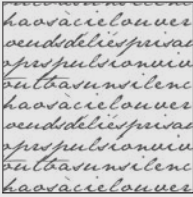 haosàcielouver
vendsdeliésprisa
oprspulsionviv
outbasunsilenc
haosàcielouver
vendsdeliésprisa
oprspulsionviv
outbasunsilenc
haosàcielouver